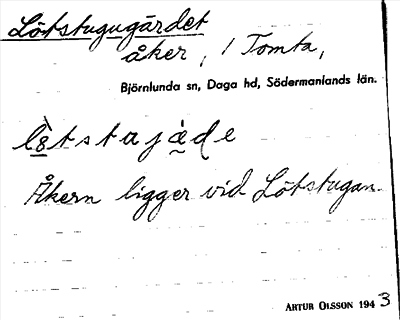 Lötstugugärdet
åker, 1 Tomta,
Björnlunda sn, Daga hd, Södermanlands län.
Åkern ligger vid Lötstugan.
ARTUR OLSSON 1943